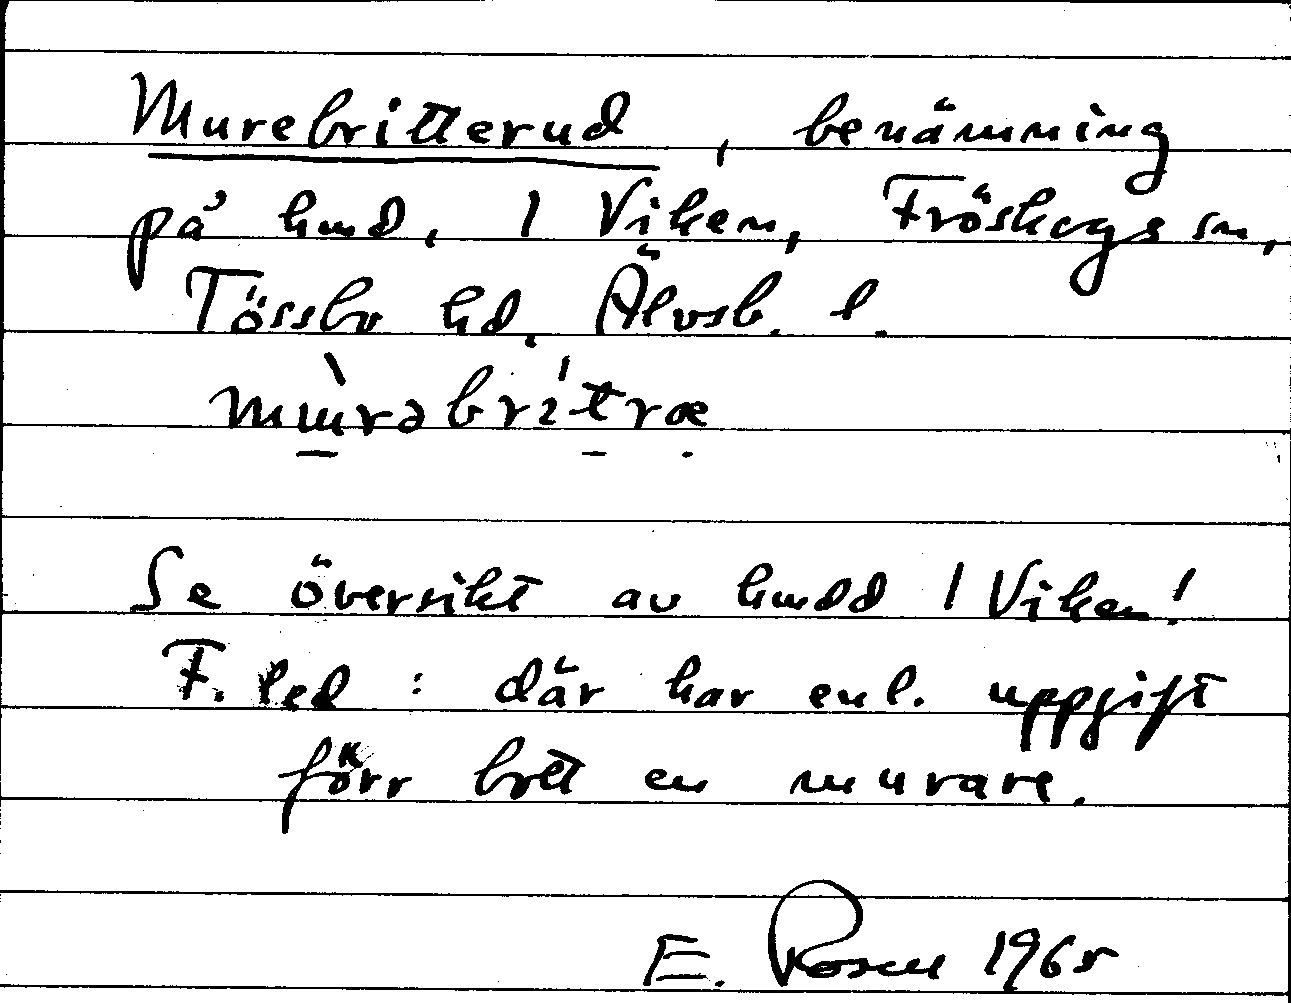 Murebritterud, benämning
på hmd, 1 Viken, Fröskogs sn,
Tössbo hd. Älvsb. l.
mùrəbrítræ
Se översikt av hmdd 1 Viken!
F. led : där har enl. uppgift
förr bott en murare.
E. Rosen 1965